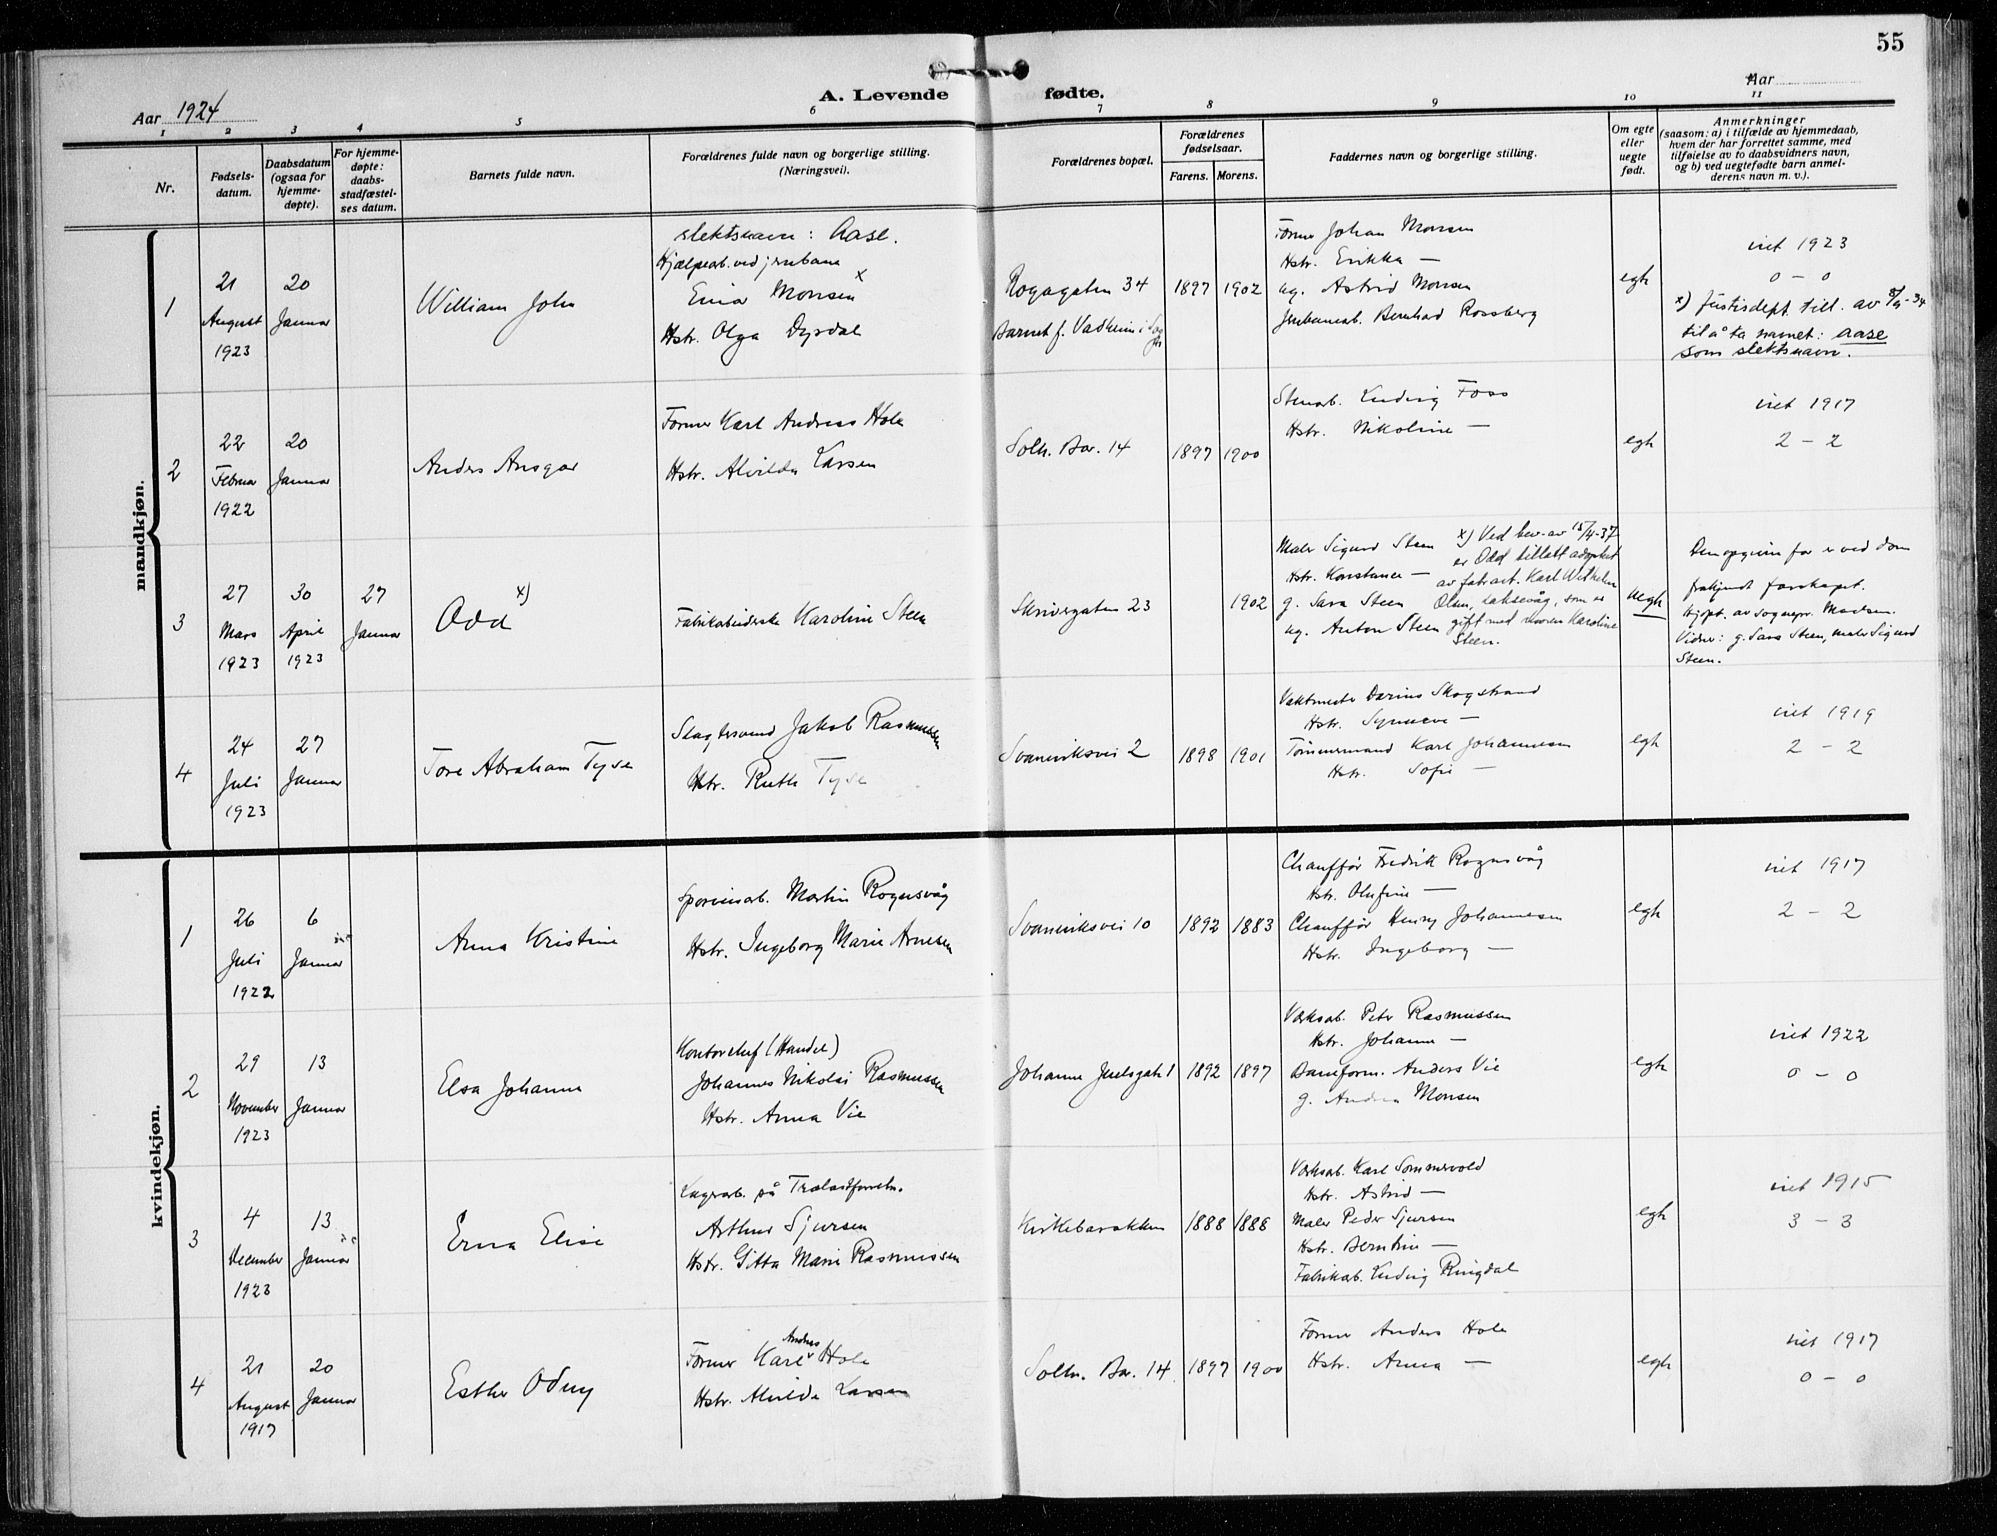 55
Aar 1924
A. Levende fødte.
Aar
1 2 3 4 5 6 7 8 9 10 11
Nr.
Fødsels-
datum.
Daabsdatum
(ogsaa for
hjemme-
døpte).
For hjemme-
døpte:
daabs-
stadfæstel-
ses datum.
Barnets fulde navn.
Forældrenes fulde navn og borgerlige stilling.
(Næringsvei).
Forældrenes bopæl.
Forældrenes
fødselsaar.
Farens. Morens.
Faddernes navn og borgerlige stilling.
Om egte
eller
uegte
født.
Anmerkninger
(saasom: a) i tilfælde av hjemmedaab,
hvem der har forrettet samme, med
tilføielse av to daabsvidners navn,
og b) ved uegtefødte barn anmel-
derens navn m. v.).
mandkjøn.
1
21
August
1923
20
Januar
William John
slektsnavn: Aase.
Hjælpearb. ved jernbane
Einar Monsen x
Hstr. Olga Dyrdal
Rogagaten 34
Barnet f. Vadheim i Sogn
1897
1902
Former Johan Monsen
Hstr. Erikka —
ug. Astrid Monsen
Jernbanearb. Bernhard Rossberg
egte
viet 1923
0 – 0
x) Justisdept. till. av 8/9-34
til å ta navnet: Aase
som slektsnavn.
2
22
Februar
1922
20
Januar
Anders Ansgar
Former Karl Andreas Hole
Hstr. Alvilda Larsen
Solh. Bar. 14
1897
1900
Stenarb. Ludvig Foss
Hstr. Nikoline —
egte
viet 1917
2 – 2
3
27
Mars
1923
30
April
1923
27
Januar
Odd x)
Fabrikarbeiderske Karoline Steen
Skivergaten 23
1902
Maler Sigurd Steen
Hstr. Konstance —
g. Sara Steen
ug. Anton Steen
x) Ved bev. av 15/4-37
er Odd tillatt adoptert
av fabr.arb. Karl Wilhelm
Olsen, Laksevåg, som er
gift med moren Karoline
Steen.
uegte
Den opgivne far er ved dom
frakjendt farskapet.
Hjdpt. av sognepr. Madsen.
Vidner: g. Sara Steen, maler Sigurd
Steen.
4
24
Juli
1923
27
Januar
Tore Abraham Tyse
Slagtersvend Jakob Rasmussen
Hstr. Ruth Tyse
Svaneviksvei 2
1898
1901
Vaktmester Darius Skogstrand
Hstr. Synneve —
Tømmermand Karl Johannesen
Hstr. Sofie —
egte
viet 1919
2 – 2
kvindekjøn.
1
26
Juli
1922
6
Januar
Anna Kristine
Sporveisarb. Martin Rognsvåg
Hstr. Ingeborg Marie Arnesen
Svaneviksvei 10
1892
1883
Chauffør Fredrik Rognsvåg
Hstr. Olufine —
Chauffør Henry Johannesen
Hstr. Ingeborg —
egte
viet 1917
2 – 2
2
29
November
1923
13
Januar
Elsa Johanne
Kontorchef (Handel)
Johannes Nikolai Rasmussen
Hstr. Anna Vie
Johanne Juelsgate 1
1892
1897
Verksarb. Peter Rasmussen
Hstr. Johanne —
Baneform. Anders Vie
g. Andrea Monsen
egte
viet 1922
0 – 0
3
4
December
1923
13
Januar
Erna Elise
Lagerarb. på Trælastforretn.
Arthur Sjursen
Hstr. Gitta Marie Rasmussen
Kirkebarakken
1888
1888
Verksarb. Karl Sommervold
Hstr. Astrid —
Maler Peder Sjursen
Hstr. Berntine —
Fabrikarb. Ludvig Ringdal
egte
viet 1915
3 – 3
4
21
August
1917
20
Januar
Esther Odny
Former Karl Andreas Hole
Hstr. Alvilda Larsen
Solh. Bar. 14
1897
1900
Former Anders Hole
Hstr. Anna —
egte
viet 1917
0 – 0